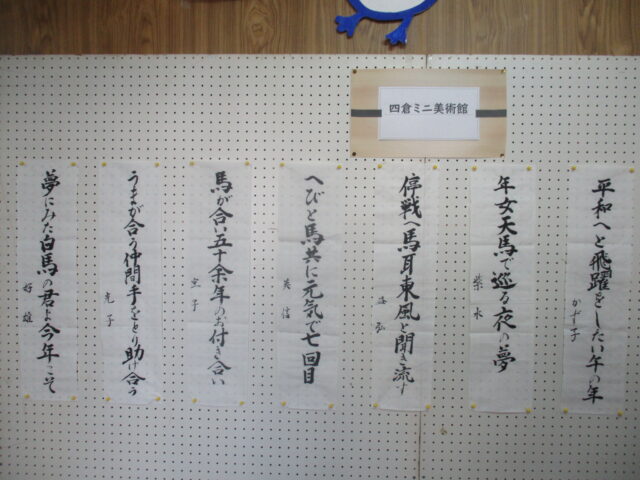 四倉ミニ美術館
平和へと飛躍をしたい午の年
かず子
年女天馬で巡る夜の夢
紫水
停戦へ馬耳東風と聞き流す
弘
へびと馬共に元気で七回目
美信
馬が合い五十余年のお付き合い
子
うまが合う仲間手をとり助け合う
光子
夢にみた白馬の君よ今年こそ
好雄